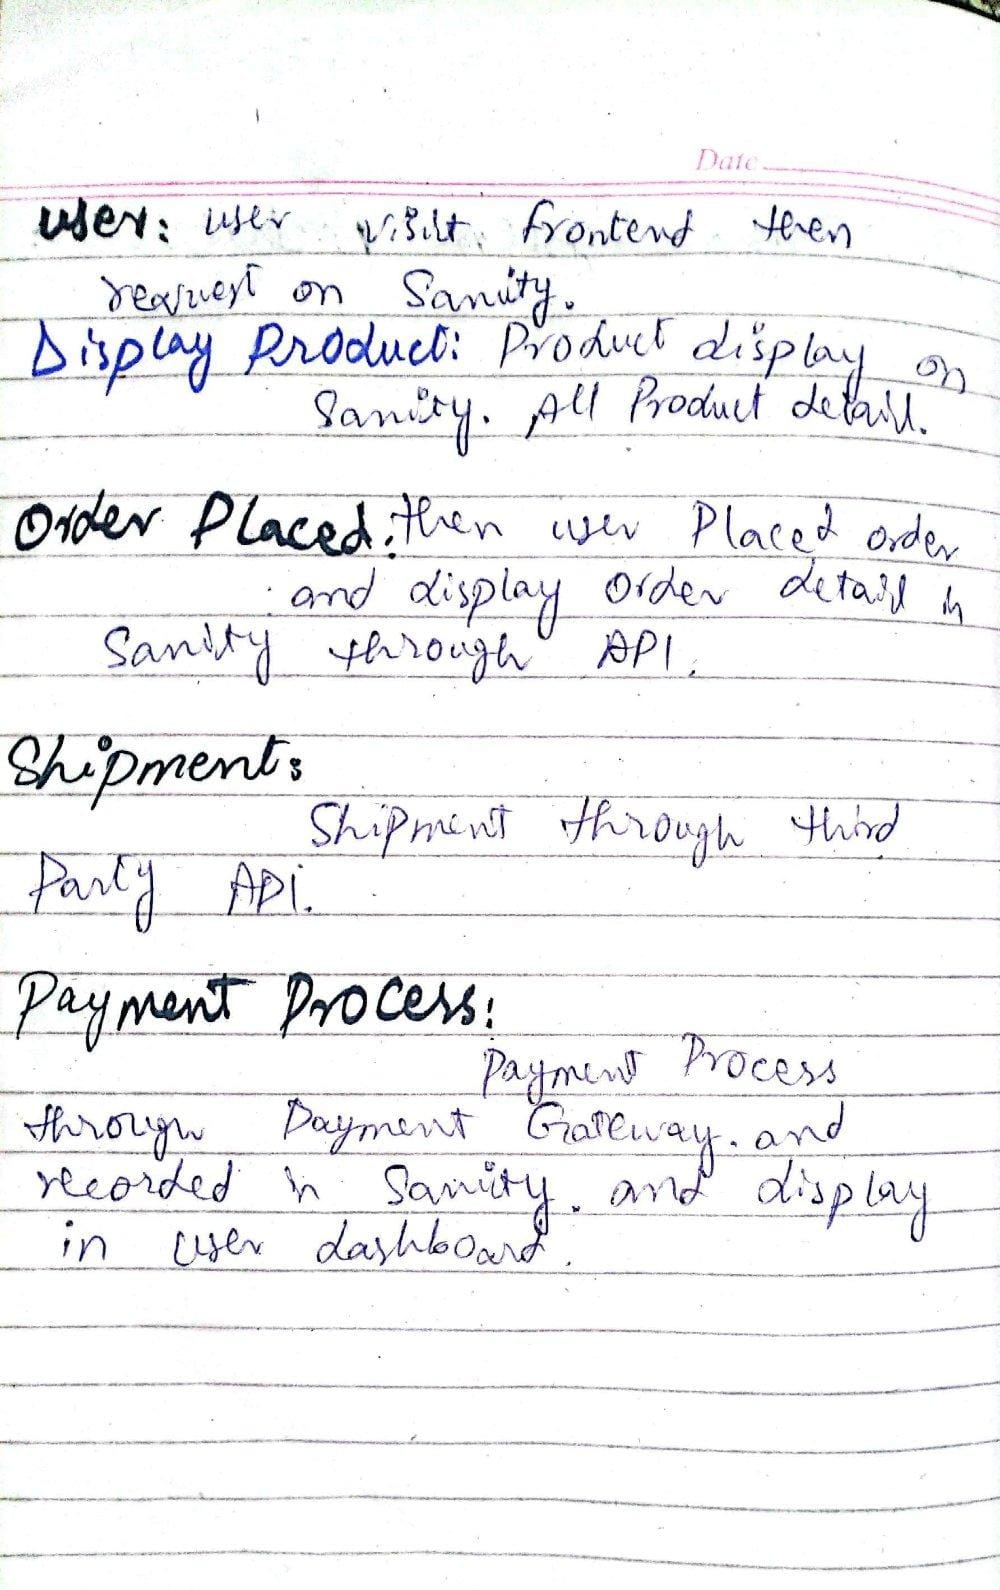 Date
User: user visit frontend then
request on Sanity.
Display Product: Product display on
Sanity. All Product detail.
Order Placed: then user Placed order
and display order detail in
Sanity through API.
Shipment:
Shipment through third
Party API.
Payment Process:
Payment Process
through Payment Gateway. and
recorded in Sanity. and display
in user dashboard.